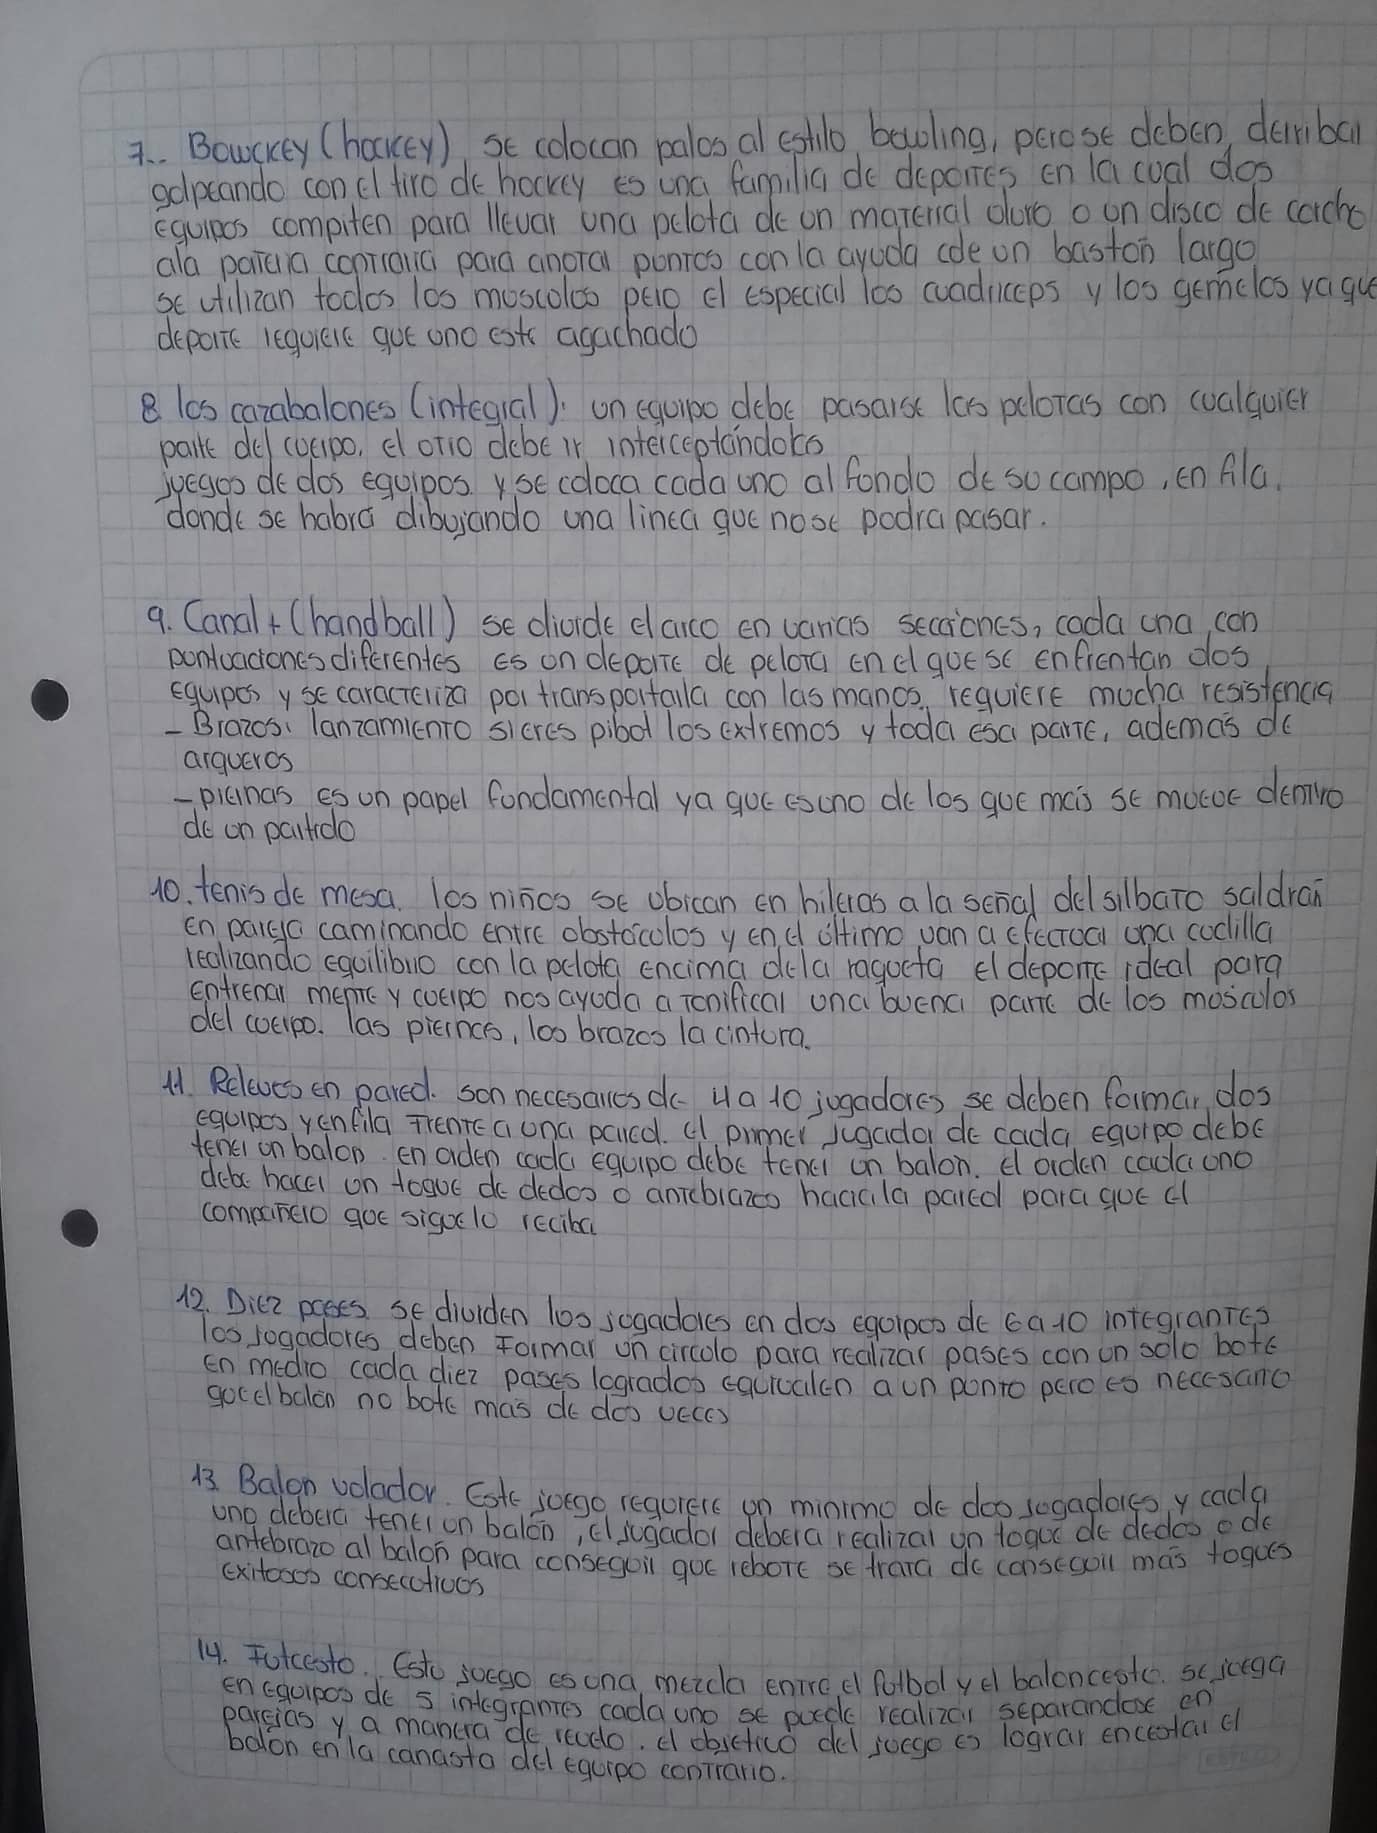 7.. Bowckey (hockey) se colocan palos al estilo bowling, pero se deben derribar
golpeando con el tiro de hockey es una familia de deportes en la cual dos
equipos compiten para llevar una pelota de un material duro o un disco de corcho
ala porteria contraria para anotar puntos con la ayuda cde un baston largo
se utilizan todos los musculos pero el especial los cuadriceps y los gemelos ya que
deporte requiere que uno este agachado
8 los cazabalones (integral): un equipo debe pasarse las pelotas con cualquier
parte del cuerpo, el otro debe ir interceptándolos
juegos de dos equipos y se coloca cada uno al fondo de su campo, en fila,
donde se habrá dibujando una linea que nose podra pasar.
9. Canal + (handball) se divide el arco en varias secciones, cada una con
puntuaciones diferentes es un deporte de pelota en el que se enfrentan dos
equipos y se caracteriza por transportarla con las manos, requiere mucha resistencia
- Brazos: lanzamiento si eres pibot los extremos y toda esa parte, ademas de
arqueros
- piernas es un papel fundamental ya que es uno de los que más se mueve dentro
de un partido
10. tenis de mesa. los niños se ubican en hileras a la señal del silbato saldran
en pareja caminando entre obstáculos y en el último van a efectuar una cuclilla
realizando equilibrio con la pelota encima dela raqueta el deporte ideal para
entrenar mente y cuerpo nos ayuda a tonificar una buena parte de los músculos
del cuerpo. las piernas, los brazos la cintura.
11. Relevos en pared. son necesarios de 4 a 10 jugadores se deben formar dos
equipos y en fila frente a una pared. el primer jugador de cada equipo debe
tener un balon. en orden cada equipo debe tener un balon. el orden cada uno
debe hacer un toque de dedos o antebrazos hacia la pared para que el
compañero que sigue lo reciba
12. Diez pases. se dividen los jogadores en dos equipos de 6 a 10 integrantes
los jogadores deben formar un circolo para realizar pases con un solo bote
en medio cada diez pases logrados equivalen a un punto pero es necesario
que el balón no bote más de dos veces
13 Balon volador. Este juego requiere un minimo de dos jogadores y cada
uno debera tener un balón, el jugador debera realizar un toque de dedos o de
antebrazo al balon para conseguir que rebote se trata de conseguir más toques
exitosos consecutivos
14. Futcesto. Este juego es una mezcla entre el futbol y el baloncesto. se juega
en equipos de 5 integrantes cada uno se puede realizar separandose en
parejas y a manera de reudo. el objetivo del juego es lograr encestar el
balon en la canasta del equipo contrario.